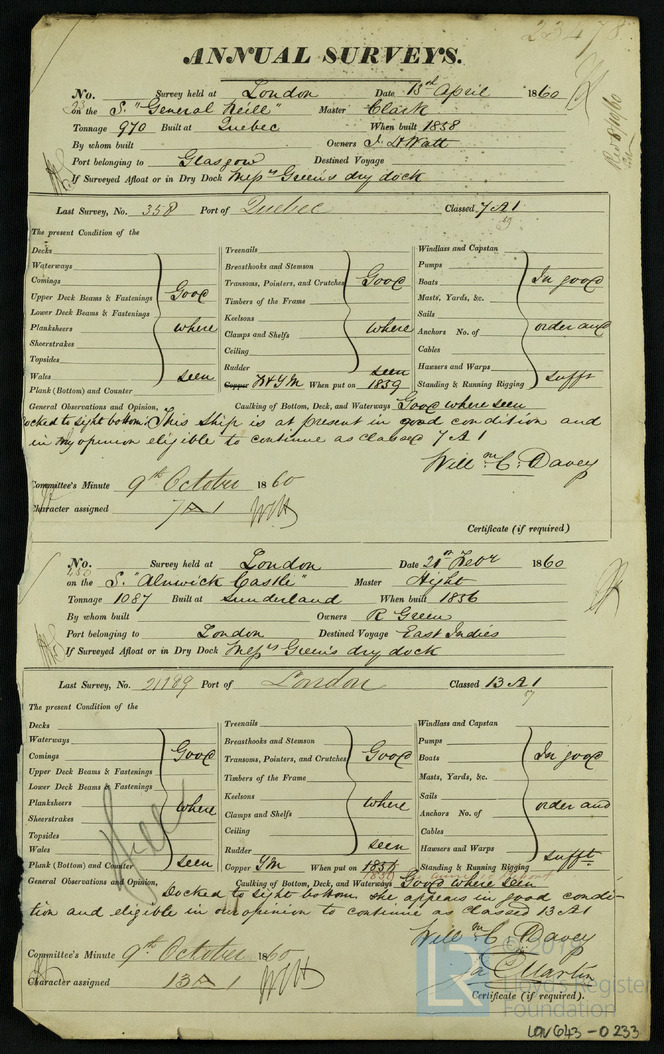 23478
ANNUAL SURVEYS.
No. Survey held at London Date 13th April 1860
23 on the S. "General Neill" Master Clark
Tonnage 970 Built at Quebec When built 1858
By whom built Owners J. & Watt
Port belonging to Glasgow Destined Voyage
If Surveyed Afloat or in Dry Dock Messrs Green's dry dock
Rec 8/10/60
Last Survey, No. 358 Port of Quebec Classed 7 A 1
59
The present Condition of the
Decks Treenails Windlass and Capstan
Waterways Breasthooks and Stemson Pumps
Comings Transoms, Pointers, and Crutches Good Boats In good
Upper Deck Beams & Fastenings Good Timbers of the Frame Masts, Yards, &c.
Lower Deck Beams & Fastenings Keelsons Sails
Planksheers where Clamps and Shelfs where Anchors No. of order and
Sheerstrakes Ceiling Cables
Topsides Rudder seen Hawsers and Warps
Wales seen Copper & YM When put on 1859 Standing & Running Rigging sufft
Plank (Bottom) and Counter
General Observations and Opinion, Caulking of Bottom, Deck, and Waterways Good where seen
ocked to sight bottom. This ship is at present in good condition and
in my opinion eligible to continue as classed 7 A 1
Willm C. Davey
Committee's Minute 9th October 1860
Character assigned 7 A 1
Certificate (if required)
No. 250 Survey held at London Date 21st Febr 1860
on the S. "Alnwick Castle" Master Hight
Tonnage 1087 Built at Sunderland When built 1856
By whom built Owners R Green
Port belonging to London Destined Voyage East Indies
If Surveyed Afloat or in Dry Dock Messrs Green's dry dock
Last Survey, No. 21189 Port of London Classed 13 A 1
57
The present Condition of the
Decks Treenails Windlass and Capstan
Waterways Breasthooks and Stemson Pumps
Comings Good Transoms, Pointers, and Crutches Good Boats In good
Upper Deck Beams & Fastenings Timbers of the Frame Masts, Yards, &c.
Lower Deck Beams & Fastenings Keelsons Sails
Planksheers where Clamps and Shelfs where Anchors No. of order and
Sheerstrakes Ceiling Cables
Topsides Rudder seen Hawsers and Warps
Wales Copper YM When put on 1856 Standing & Running Rigging sufft
Plank (Bottom) and Counter seen
General Observations and Opinion, Caulking of Bottom, Deck, and Waterways Good where seen
Docked to sight bottom. She appears in good condi-
tion and eligible in our opinion to continue as classed 13 A 1
Willm C. Davey
Jas C Martin
Committee's Minute 9th October 1860
Character assigned 13 A 1
Certificate (if required).
© 2019
LR
Lloyd's Register
Foundation
LON 643-0233